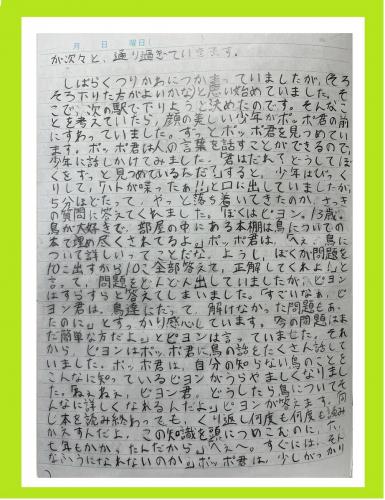 月 日 曜日(
が次々と、通り過ぎていきます。
しばらくつりかわにつか まっていましたが、(そろ
そろ下りた方がよいかな)と思い始めていました。そ
こで、次の駅で下りようと決めたのです。そんなこ
とを考えていたら、顔の美しい少年がポッポ君の前
にすわっていました。ずっとポッポ君を見つめてい
ます。ポッポ君は人の言葉を話すことができるので、
少年に話しかけてみました。「君はだれ?どうしてぼ
くをずっと見つめているんだ。」すると、少年はびっく
りして、「ハトが喋ったぁ!!」と口に出していましたが、
5分ほどたって、やっと落ち着いてきたのか、さっき
の質問に答えてくれました。「ぼくはピヨン。13歳。
鳥が大好きで、部屋の中にある本棚は鳥についての
本で埋め尽くされてるよ。」ポッポ君は、「へぇ、鳥に
ついて詳しいってことだな。ようし、ぼくが問題を
10こ出すから10こ全部答えて、正解してくれよ!」と
言って、問題をどんどん出していましたが、ピヨン
はすらすらと答えてしまいました。「すごいなぁ、ピ
ヨン君は。鳥達にだって、解けなかった問題もあっ
たのに。」とすっかり感心しています。「今の問題はま
だ簡単な方だよ。」とピヨンは言っていました。それ
から、ピヨンはポッポ君に鳥の話をたくさん話して
いました。ポッポ君は、自分の知らない鳥のことを
こんなに知っているピヨンがうらやましくなりまし
た。「ねぇねぇ、ピヨン君、どうしたら鳥についてそ
んなに詳しくなれるんだよ。」ピヨンが答えます。「同
じ本を読み終わっても、くり返し何度も何度も読み
かえすんだよ。この知識を頭につめこむのに、
七年もかかったんだから。」「へぇ〜。すぐには、そん
なふうになれないのか。」ポッポ君は、少しがっかり